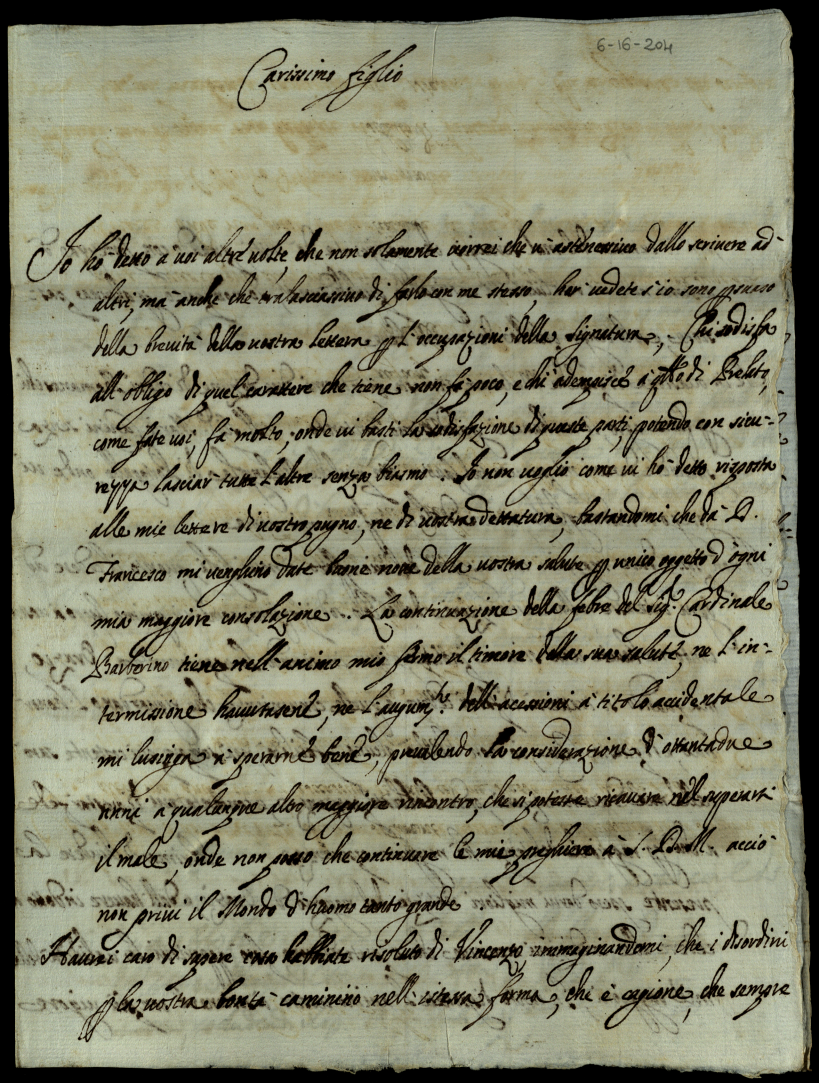 6-16-204
Carissimo figlio
Io hò detto a voi altre volte, che non solamente vorrei che v'astenessivo dallo scrivere ad
altri, mà anche che tralasciassivo di farlo con me stesso, hor vedete s'io sono
della brevità della vostra lettera p l'occupazioni della Signatura, Chi sodisfa
all'obligo di quel carattere che tiene non fà poco, e chi adempisce a di Prelato,
come fate voi, fà molto, onde vi basti la sodisfazione di queste parti, potendo con sicu-
rezza lasciar tutte l'altre senza biasmo. Io non voglio come vi hò detto risposta
alle mie lettere di vostro pugno, ne di vostra dettatura, bastandomi che da D.
Francesco mi venghino date buone nove della vostra salute p unico oggetto d'ogni
mia maggiore consolazione. La continuazione della febre del Sig.r Cardinale
Barberino tiene nell'animo mio fermo il timore della sua salute, ne l'in-
termissione havutasene, ne dell'acessioni à titolo accidentale
mi lusinga a sperarne bene, prevalendo la considerazione d'ottantadue
anni a qualunque altro maggiore rincontro, che si potesse ricavare nel superarsi
il male, onde non posso che continuare le mie preghiere à S. D. M. acciò
non privi il Mondo d'huomo tanto grande
Haverei caro di sapere cosa habbiate risoluto di Vincenzo, immaginandomi, che i disordini
p la vostra bontà caminino nell'istessa forma, che è cagione, che sempre